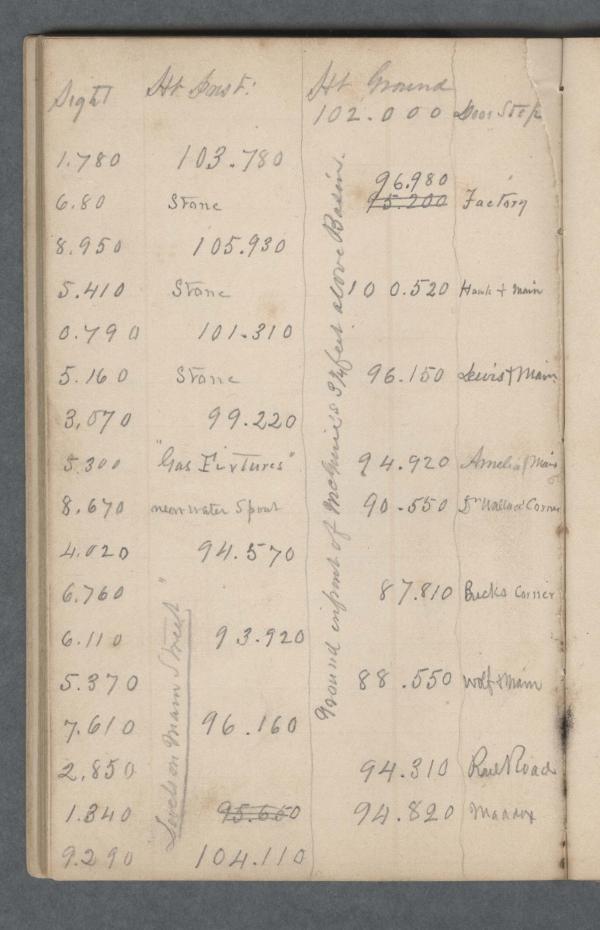 Sight Ht Inst: Ht Ground
102.000 Door Step
1.780 103.780
96.980
6.80 Stone 95.200 Factory
8.950 105.930
5.410 Stone 100.520 Hank & Main
0.790 101.310
5.160 Stone 96.150 Lewis & Main
3,070 99.220
5.300 "Gas Fixtures" 94.920 Amelia & Main
8.670 near water Spout 90.550 Dr Wallace Corner
4.020 94.570
6.760 87.810 Bucks Corner
6.110 93.920
5.370 88.550 Wolf & Main
7.610 96.160
2.850 94.310 Rail Road
1.340 95.660 94.820 Maddox
9.290 104.110
Levels on Main Street"
Ground infront of McGuire's feet above Basin.